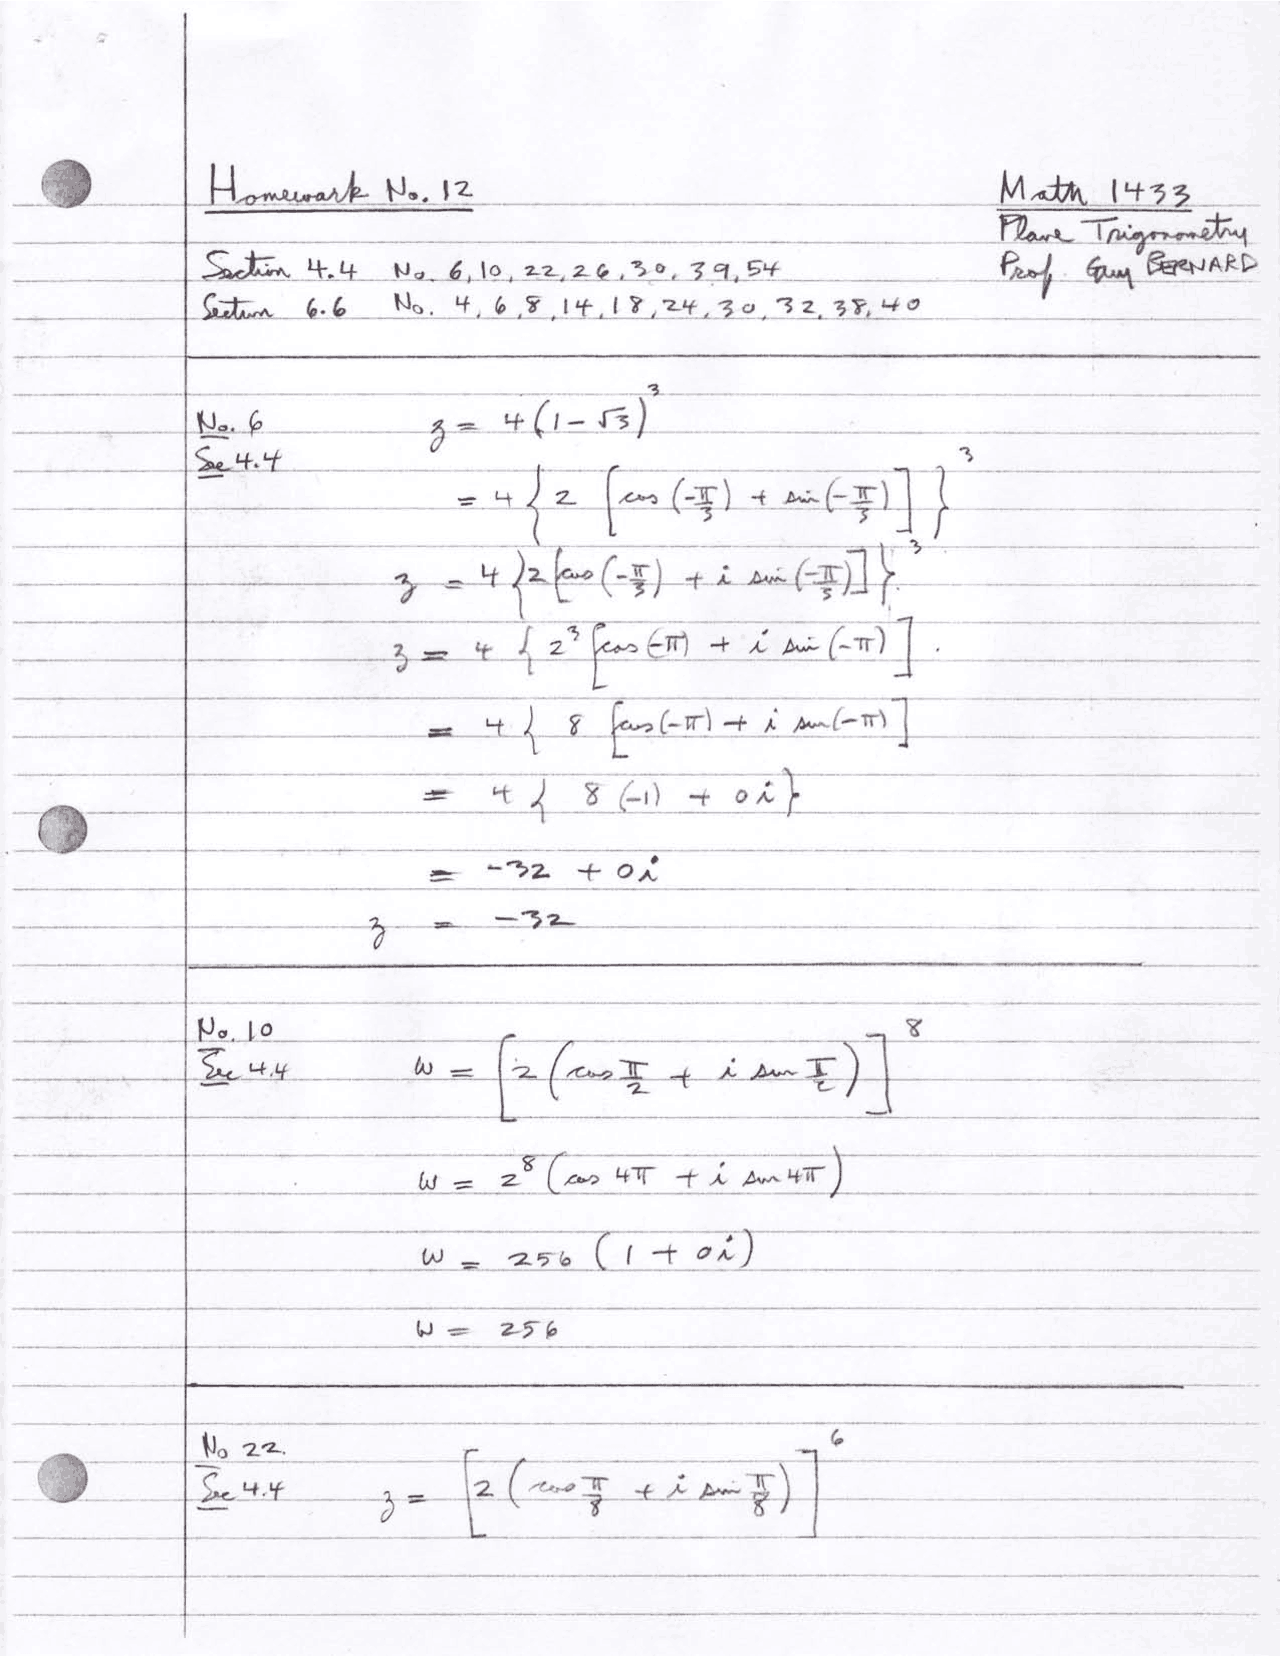 Homework No. 12
Math 1433
Plane Trigonometry
Prof. Guy BERNARD
Section 4.4 No. 6, 10, 22, 26, 30, 39, 54
Section 6.6 No. 4, 6, 8, 14, 18, 24, 30, 32, 38, 40
No. 6
Sec 4.4
z = 4(1 - √3)^3
= 4{2[cos(-π/3) + sin(-π/3)]}^3
z = 4{2[cos(-π/3) + i sin(-π/3)]}^3
z = 4{2^3[cos(-π) + i sin(-π)].
= 4{8[cos(-π) + i sin(-π)]
= 4{8(-1) + 0i}
= -32 + 0i
z = -32
No. 10
Sec 4.4
w = [2(cos π/2 + i sin π/2)]^8
w = 2^8(cos 4π + i sin 4π)
w = 256(1 + 0i)
w = 256
No 22.
Sec 4.4
z = [2(cos π/8 + i sin π/8)]^6